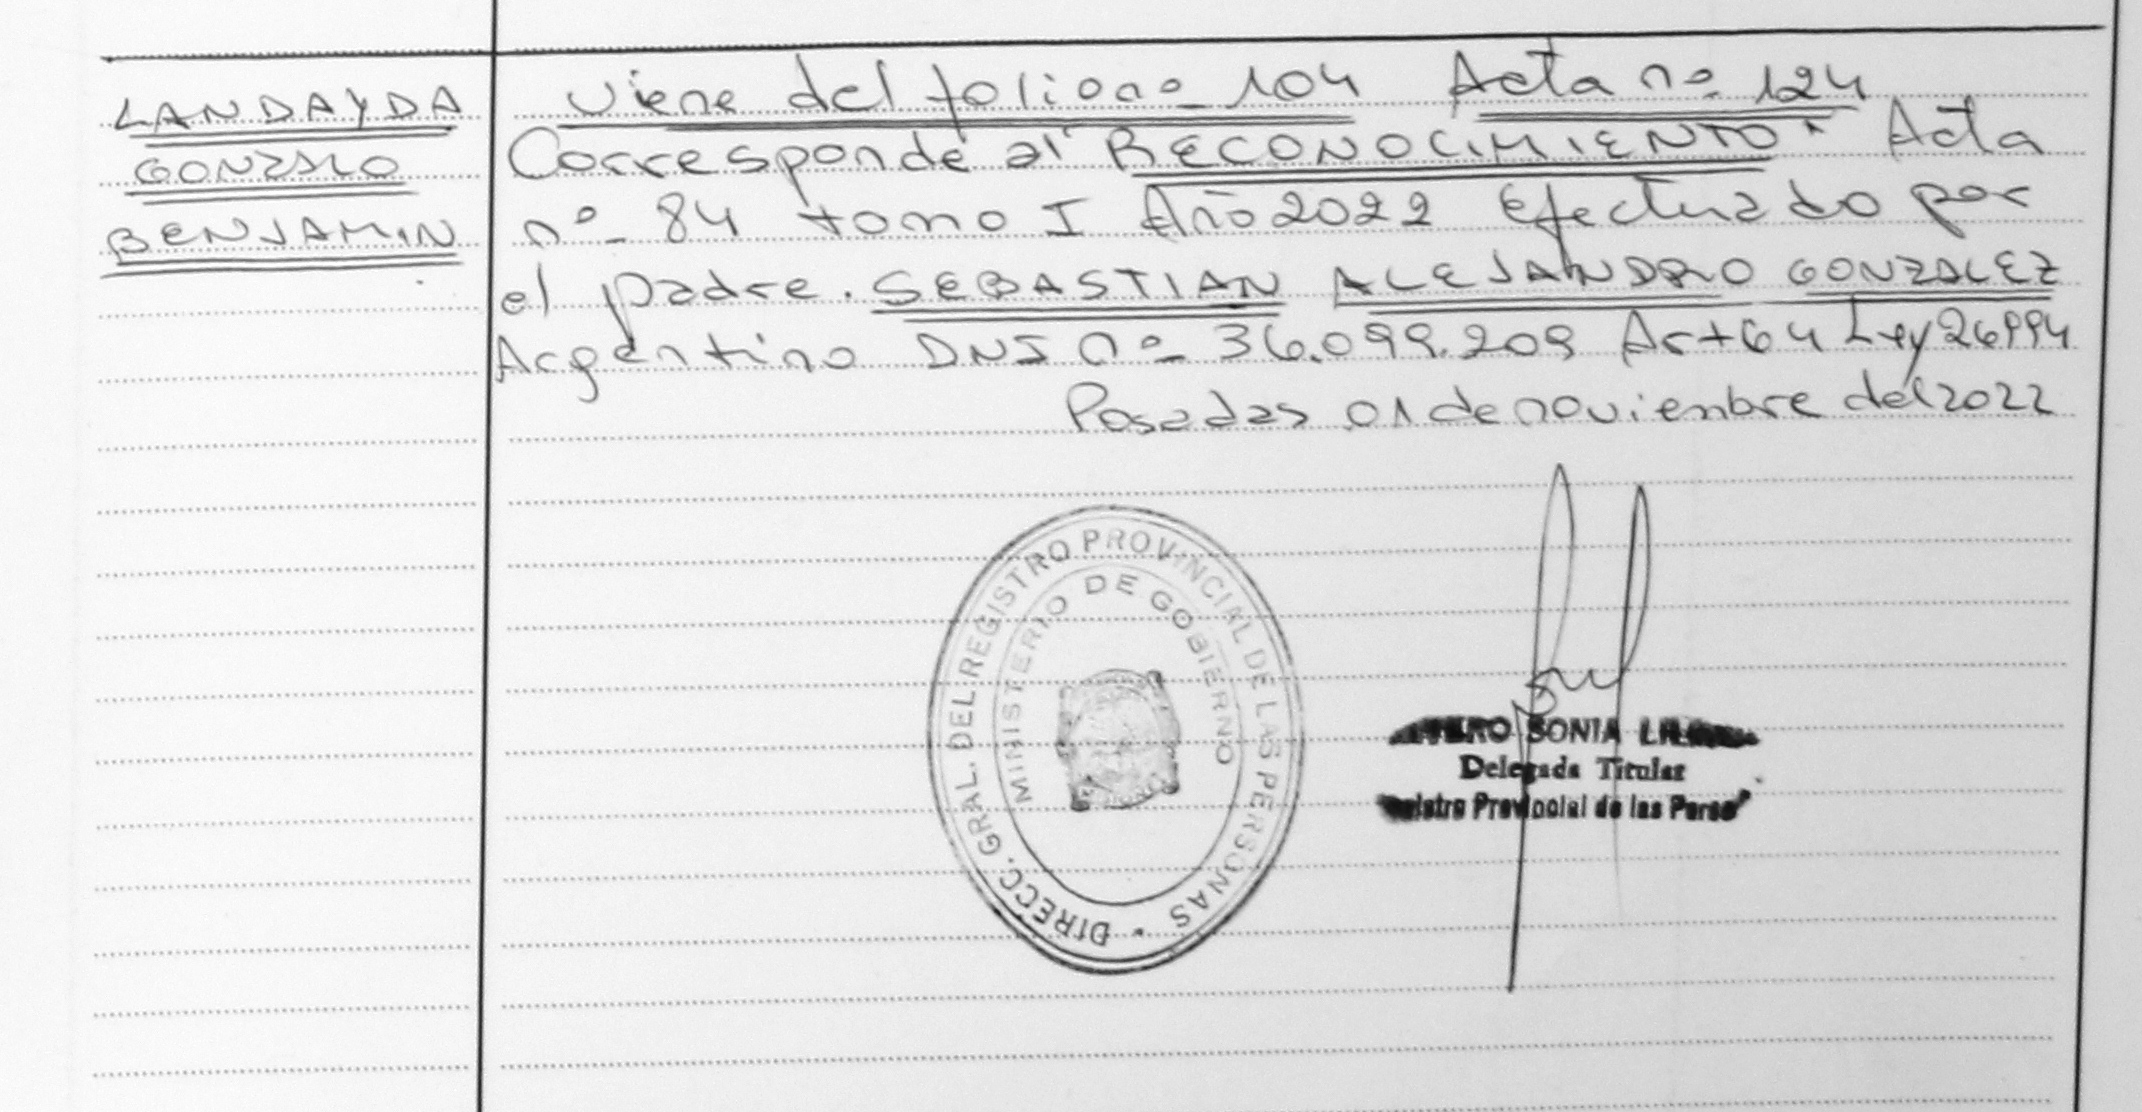 LANDAYDA
GONZALO
BENJAMIN
Viene del folio nº 104 Acta nº 124
Corresponde al "RECONOCIMIENTO" Acta
nº 84 tomo I Año 2022 Efectuado por
el padre. SEBASTIAN ALEJANDRO GONZALEZ
Argentino DNI nº 36.099.209 Art 64 Ley 26994
Posadas 01 de noviembre del 2022
DIRECC. GRAL. DEL REGISTRO PROVINCIAL DE LAS PERSONAS
MINISTERIO DE GOBIERNO
SONIA
Delegada Titular
Provincial de las